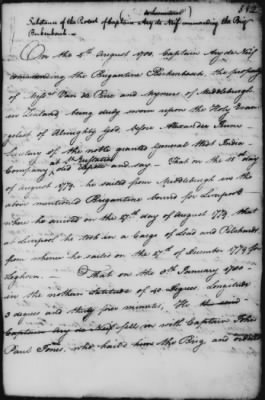 (
Substance of the Protest of Captain Ary de Neif commanding the Brig
Berkenbosch.
On the 5th August 1780. Captain Ary de Neif
commanding the Brigantine Berkenbosch, the property
of Messrs. Van de Perre and Meyners of Middleburgh
in Zealand being duly sworn upon the Holy Evan-
gelist of Almighty God, before Alexander
Secretary of the noble granted general West India
Company at St. Eustatius did depose and say. That on the 15th day
of August 1779. he sailed from Middleburgh in the
above mentioned Brigantine bound for Liverpool
where he arrived on the 27th day of August 1779. that
at Liverpool he took in a Cargo of Lead and Pilchards
from whence he sailed on the 27th of December 1779 for
Leghorn. — That on the 8th January 1780 —
in the northern latitude of 40 degrees, Longitude
3 degrees and thirty five minutes, He the said
Captain Ary de Neif fell in with Captain John
Paul Jones, who hail'd him the Brig and ordered